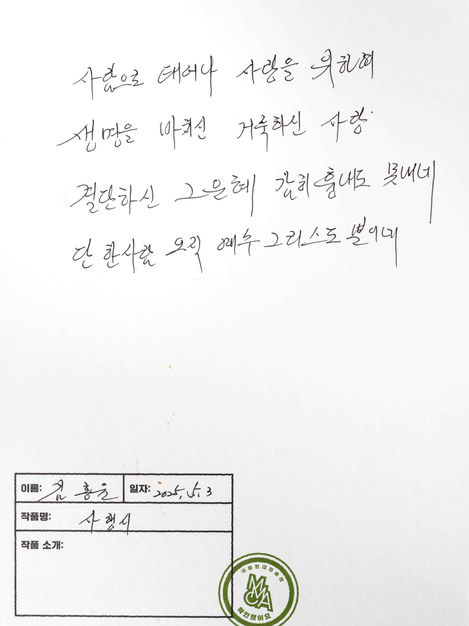 사람으로 태어나 사랑을 위하여
생명을 바치신 거룩하신 사랑
결단하신 그 은혜 감히 흉내도 못내네
단 한사람 오직 예수 그리스도 뿐이네
이름: 김홍윤 일자: 2025. 5. 3
작품명: 사행시
작품 소개:
국립현대미술관
MMCA
확인했어요